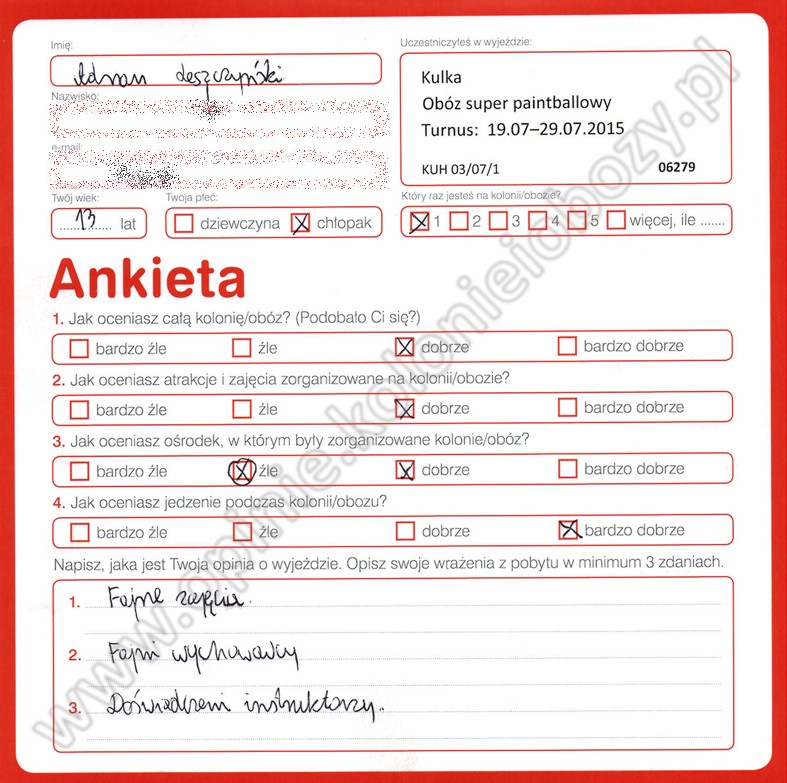 Imię:
Adrian Leszczyński
Nazwisko:
e-mail:
Twój wiek:
13 lat
Twoja płeć:
dziewczyna chłopak
Uczestniczyłeś w wyjeździe:
Kulka
Obóz super paintballowy
Turnus: 19.07–29.07.2015
KUH 03/07/1 06279
Który raz jesteś na kolonii/obozie?
1 2 3 4 5 więcej, ile .......
Ankieta
1. Jak oceniasz całą kolonię/obóz? (Podobało Ci się?)
bardzo źle źle dobrze bardzo dobrze
2. Jak oceniasz atrakcje i zajęcia zorganizowane na kolonii/obozie?
bardzo źle źle dobrze bardzo dobrze
3. Jak oceniasz ośrodek, w którym były zorganizowane kolonie/obóz?
bardzo źle źle dobrze bardzo dobrze
4. Jak oceniasz jedzenie podczas kolonii/obozu?
bardzo źle źle dobrze bardzo dobrze
Napisz, jaka jest Twoja opinia o wyjeździe. Opisz swoje wrażenia z pobytu w minimum 3 zdaniach.
1. Fajne zajęcia.
2. Fajni wychowawcy
3. Doświadczeni instruktorzy.
www.opinie.kolonieiobozy.pl